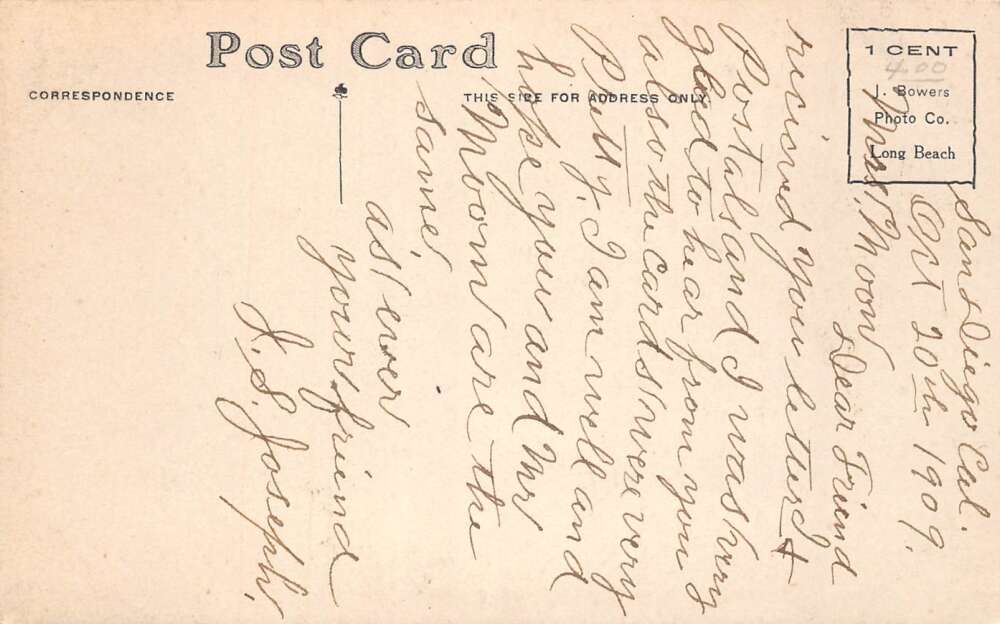 Post Card
CORRESPONDENCE
THIS SIDE FOR ADDRESS ONLY
1 CENT
4.00
J. Bowers
Photo Co.
Long Beach
San Diego Cal.
Oct 20th 1909.
Mrs. Moon,
Dear Friend
recieved your letter &
Postals and I was very
glad to hear from you
also the cards were very
Pretty. I am well and
hope you and Mr
Moon are the
same,
as ever
your friend
J. S. Joseph.